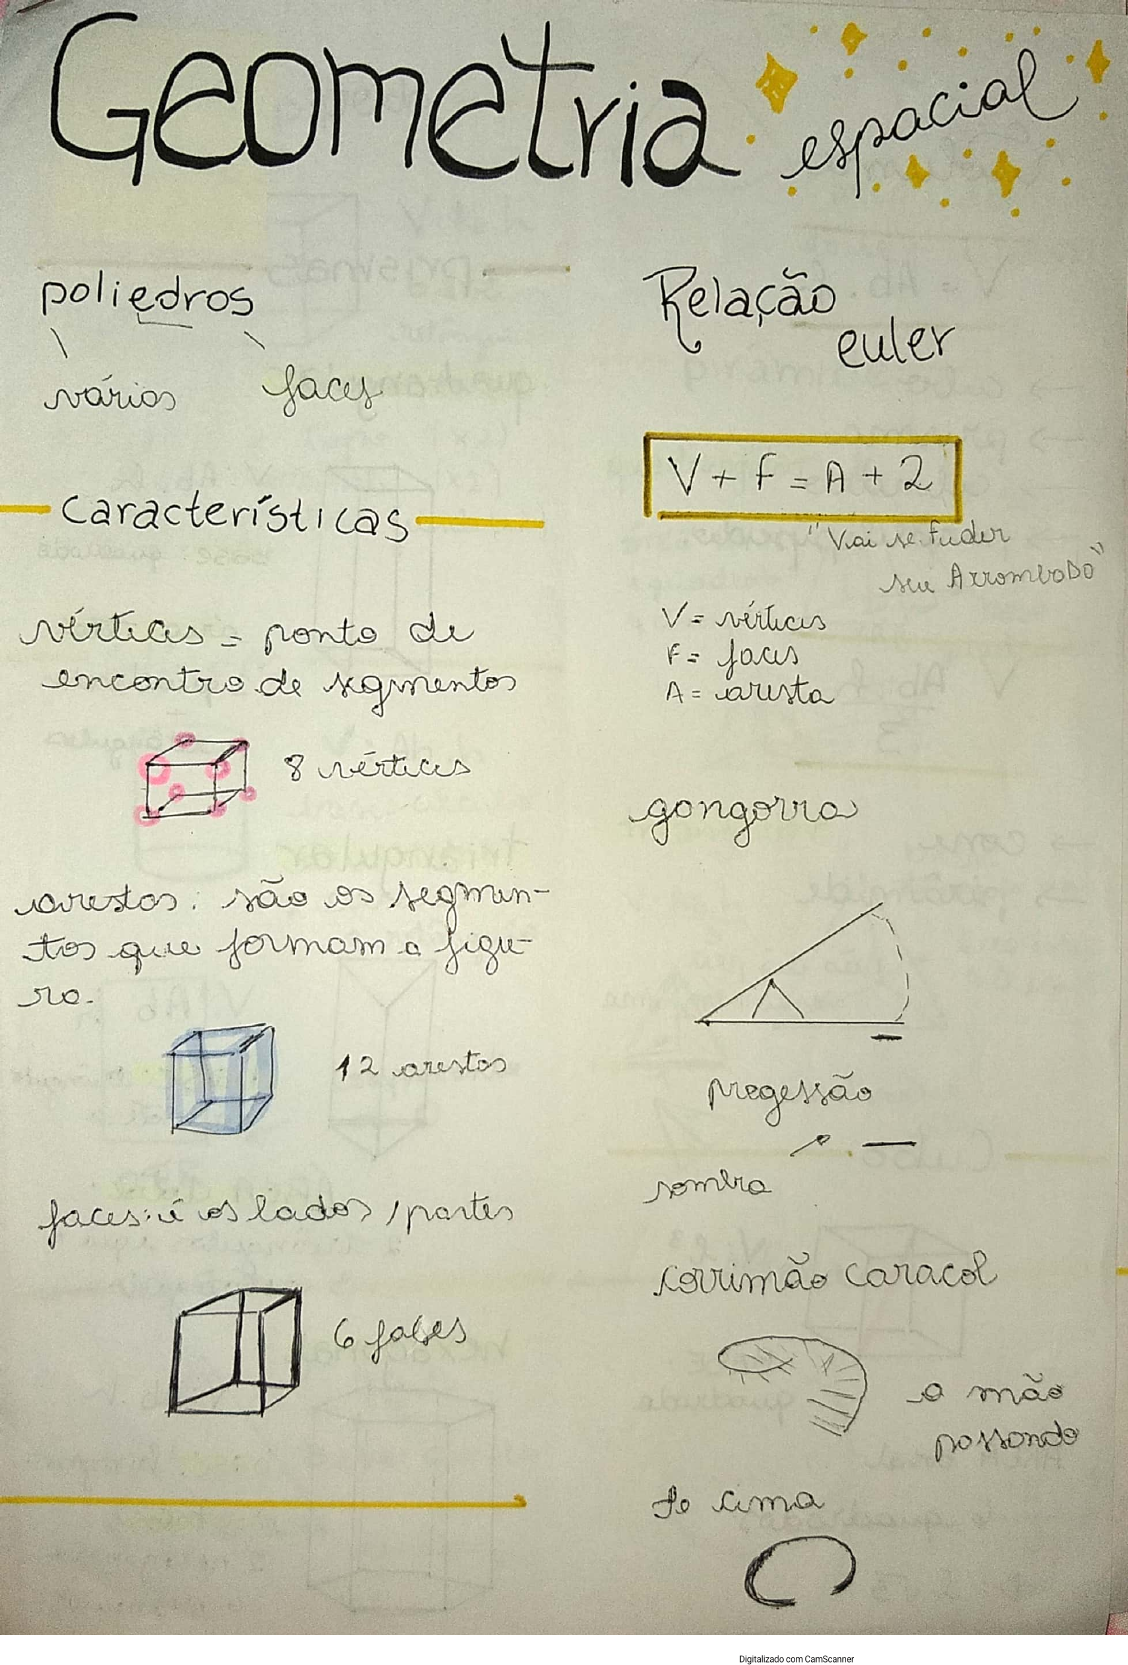 Geometria espacial
poliedros
vários faces
Características
vértices = ponto de
encontro de segmentos
8 vértices
arestas: são os segmen-
tos que formam a figu-
ra.
12 arestas
faces: é os lados/partes
6 faces
Relação
euler
V + F = A + 2
"Vai se Fuder
seu ArromboDo"
V = vértices
F = faces
A = aresta
gongorra
progessão
sombra
corrimão caracol
a mão
passando
de cima
Digitalizado com CamScanner